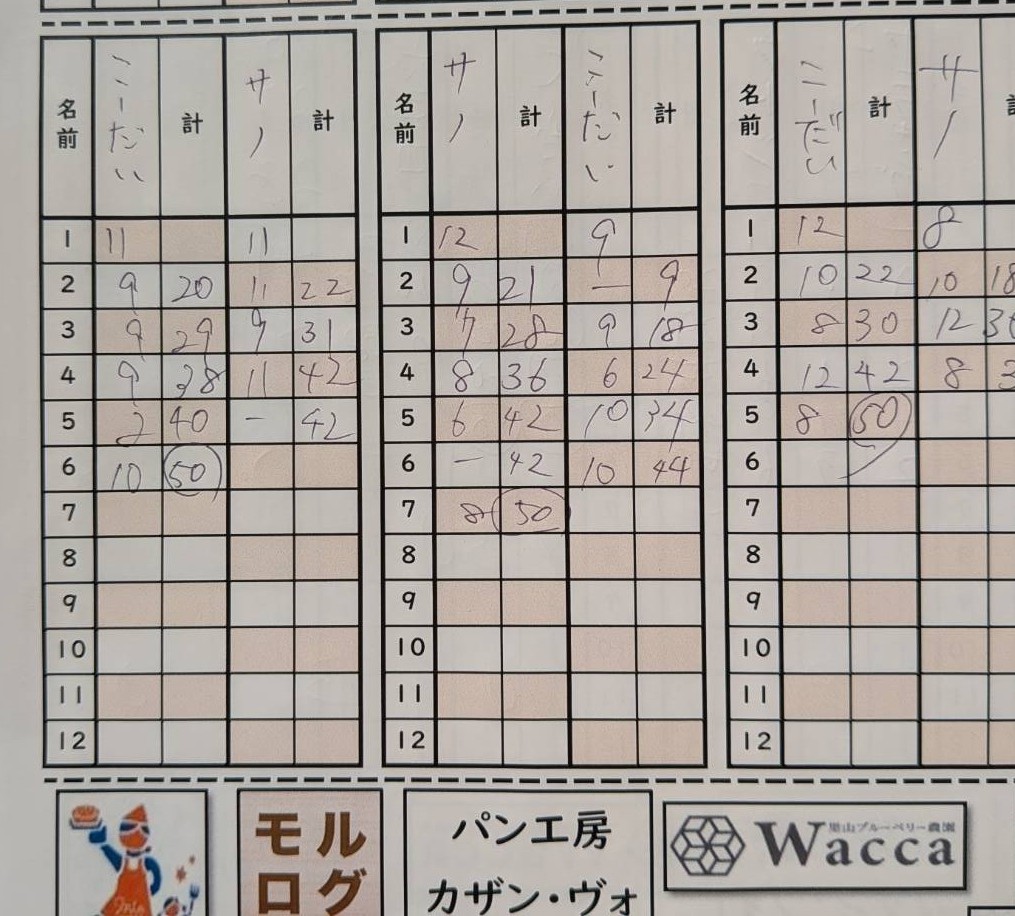 名前 こーだい 計 サノ 計
1 11 11
2 9 20 11 22
3 9 29 9 31
4 9 38 11 42
5 2 40 - 42
6 10 50
7
8
9
10
11
12
名前 サノ 計 こーだい 計
1 12 9
2 9 21 - 9
3 7 28 9 18
4 8 36 6 24
5 6 42 10 34
6 - 42 10 44
7 8 50
8
9
10
11
12
名前 こーだい 計 サノ
1 12 8
2 10 22 10 18
3 8 30 12 30
4 12 42 8
5 8 50
6
7
8
9
10
11
12
モル
ログ
パン工房
カザン・ヴォ
黒山ブルーベリー農園
Wacca